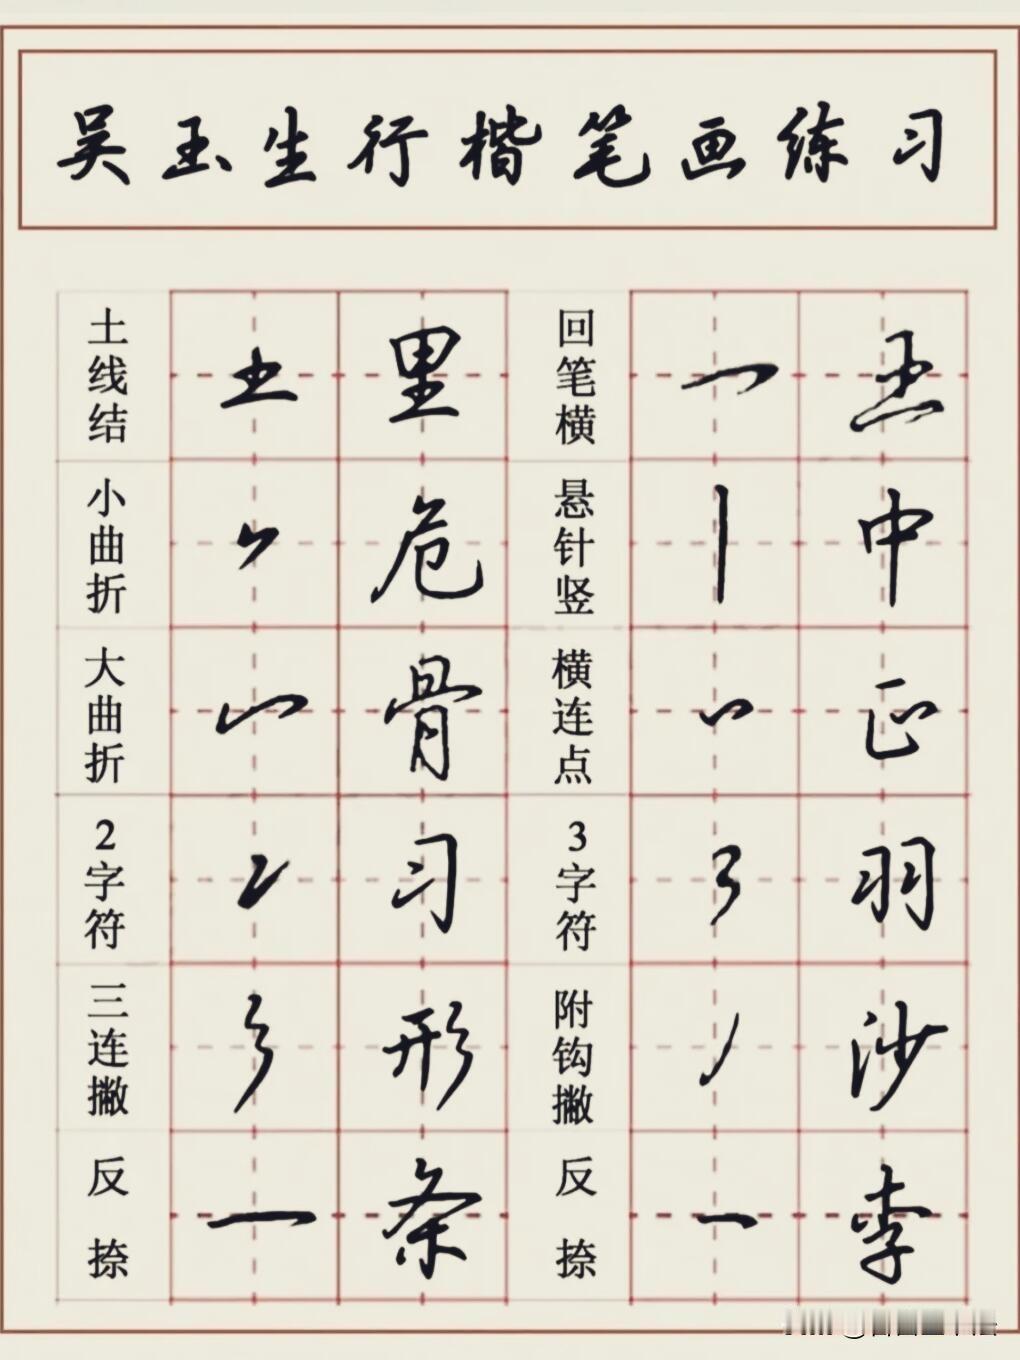 吴玉生行楷笔画练习
土线结 土 里 回笔横 一 王
小曲折 危 悬针竖 丨 中
大曲折 骨 横连点 正
2字符 习 3字符 3 羽
三连撇 形 附钩撇 丿 沙
反捺 一 条 反捺 一 李